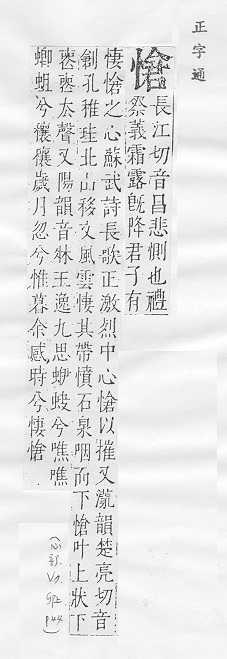 正字通
愴
長江切音昌悲惻也禮
祭義霜露旣降君子有
悽愴之心蘇武詩長歌正激烈中心愴以摧又漾韻楚亮切音
創孔稚珪北山移文風雲悽其帶憤石泉咽而下愴叶上狀下
聲又陽韻音牀王逸九思兮噍噍
蝍蛆兮穰穰歲月忽兮惟暮余感時兮悽愴
P44